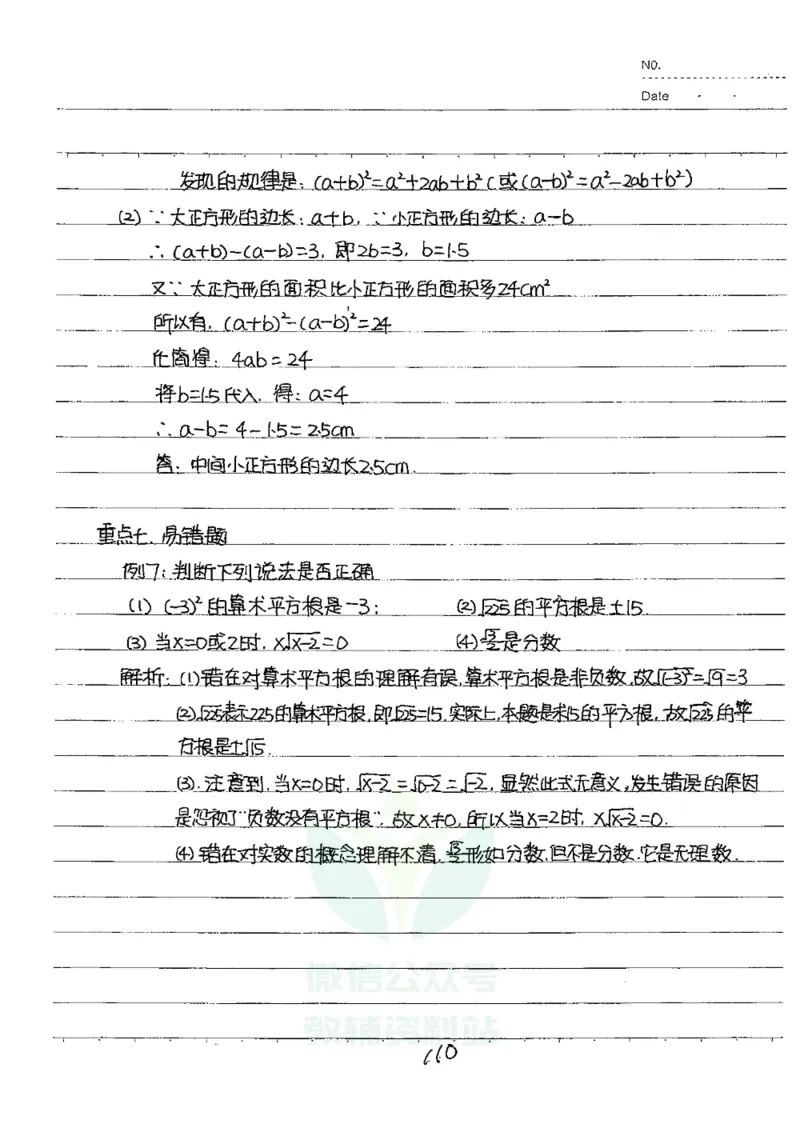 NO.
Date
发现的规律是：(a+b)²=a²+2ab+b²(或(a-b)²=a²-2ab+b²)
(2) ∵大正方形的边长：a+b，∵小正方形的边长：a-b
∴(a+b)-(a-b)=3，即2b=3，b=1.5
又∵大正方形的面积比小正方形的面积多24cm²
所以有，(a+b)²-(a-b)²=24
化简得：4ab=24
将b=1.5代入，得：a=4
∴a-b=4-1.5=2.5cm
答：中间小正方形的边长2.5cm.
重点七、易错题
例7：判断下列说法是否正确
(1) (-3)²的算术平方根是-3； (2)√225的平方根是±15.
(3) 当x=0或2时，x√x-2=0 (4)是分数
解析：(1)错在对算术平方根的理解有误，算术平方根是非负数，故√(-3)²=√9=3
(2)√225表示225的算术平方根，即√225=15，实际上，本题是求15的平方根，故√225的平
方根是±√15.
(3).注意到，当x=0时，√x-2=√0-2=√-2，显然此式无意义，发生错误的原因
是忽视了"负数没有平方根"，故x≠0，所以当x=2时，x√x-2=0.
(4)错在对实数的概念理解不清，形如分数，但不是分数，它是无理数.
微信公众号
教辅资料站
110